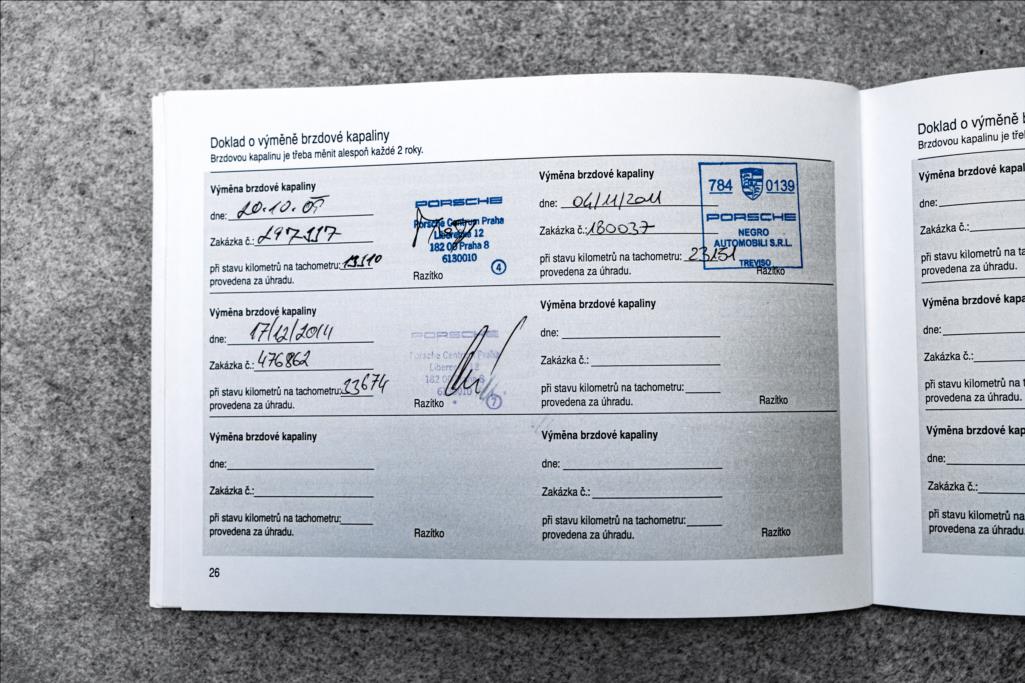 Doklad o výměně brzdové kapaliny
Brzdovou kapalinu je třeba měnit alespoň každé 2 roky.
Výměna brzdové kapaliny
dne: 20.10.09
Zakázka č.: 297117
při stavu kilometrů na tachometru:
provedena za úhradu.
PORSCHE
Porsche Centrum Praha
Liberecká 12
182 00 Praha 8
6130010
4
Razítko
Výměna brzdové kapaliny
dne: 04/11/2011
Zakázka č.: 180037
při stavu kilometrů na tachometru: 23151
provedena za úhradu.
784 0139
PORSCHE
NEGRO
AUTOMOBILI S.R.L.
TREVISO
Razítko
Výměna brzdové kapaliny
dne: 17/12/2014
Zakázka č.: 476862
při stavu kilometrů na tachometru: 33674
provedena za úhradu.
PORSCHE
Porsche Centrum Praha
182 00 Praha 8
6130010
7
Razítko
Výměna brzdové kapaliny
dne:
Zakázka č.:
při stavu kilometrů na tachometru:
provedena za úhradu.
Razítko
Výměna brzdové kapaliny
dne:
Zakázka č.:
při stavu kilometrů na tachometru:
provedena za úhradu.
Razítko
Výměna brzdové kapaliny
dne:
Zakázka č.:
při stavu kilometrů na tachometru:
provedena za úhradu.
Razítko
26
Doklad o výměně b
Brzdovou kapalinu je tře
Výměna brzdové kap
dne:
Zakázka č.:
při stavu kilometrů na ta
provedena za úhradu.
Výměna brzdové kap
dne:
Zakázka č.:
při stavu kilometrů na t
provedena za úhradu.
Výměna brzdové kap
dne:
Zakázka č.:
při stavu kilometrů na
provedena za úhradu.